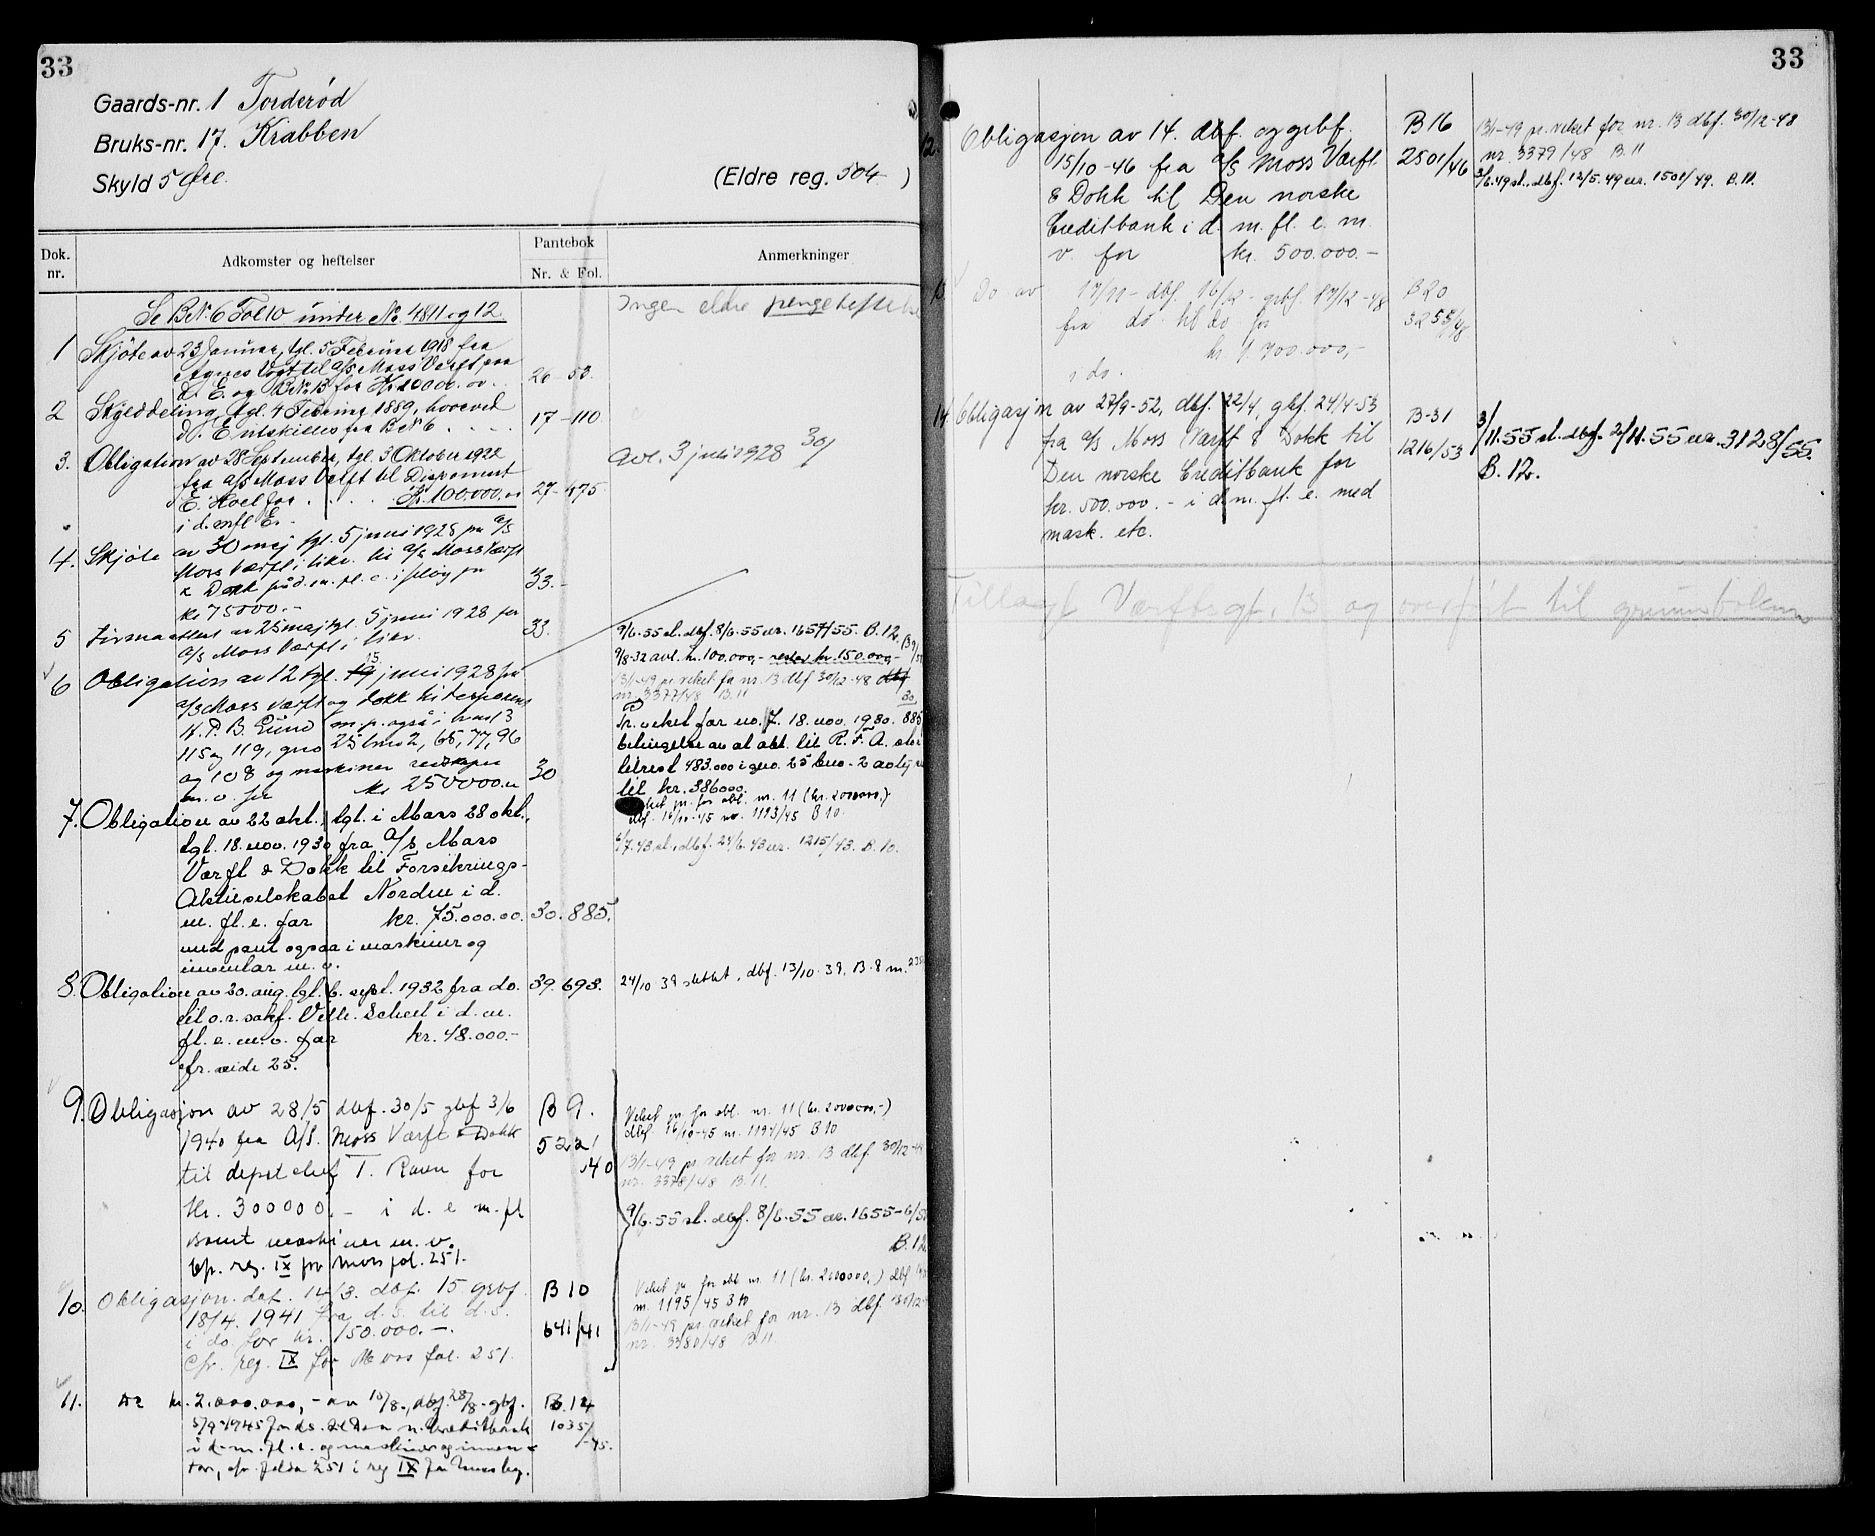 33
Gaards-nr. 1 Torderød
Bruks-nr. 17. Krabben
Skyld 5 Øre.
(Eldre reg. 504 )
Dok. nr.
Adkomster og heftelser
Pantebok
Nr. & Fol.
Anmerkninger
Se BN. 6 Fol 10 under No. 4811 og 12
Ingen eldre pengeheftelser
1 Skjøte av 23 Januar, tgl. 5 Februar 1918 fra
Agnes Vogt til a/s Moss Værft paa
d. E. og BNo. 13 for Kr. 10000. 26-53.
2 Skylddeling, tgl. 4 Februar 1889, hvorved
d. E utskilles fra BNo 6 . . . . 17-110
3. Obligation av 28 September, tgl. 3 Oktober 1922
fra a/s Moss Værft til Disponent
E. Hoel for . . . . Kr. 100.000. 27-475.
i d. m fl E.
Avl. 3 juli 1928 30/
4. Skjøte av 30 mej tgl. 5 juni 1928 fra a/s
Moss Værft i likv. til a/s Moss Værft
& Dokk på d. m. fl. e. i følge på
kr 75000.- 33.-
5 Firmaattest av 25 mej tgl. 5 juni 1928 for
a/s Moss Værft i likv. 33.
6 Obligation av 12 tgl. 15 juni 1928 fra
a/s Moss Værft og Dokk til
H. P. B. Lund m. p. også i bnr 13
115 og 119, gno 25 bno 2, 65, 77, 96
og 108 og maskiner redskaper
m. v. for kr 250000.- 30
9/6-55 sl. dbf. 8/6-55 nr. 1657/55. B. 12.
9/8-32 avl. kr. 100.000,- rester kr. 150.000,-
13/1-49 pr. veket for nr. 13 dbf 30/12-48
nr. 3377/48 B. 11
Pr. veket for no. 7. 18. nov. 1930. 885
betingelse av at obl. til R. F. A. stor
tilrest 483.000 i gno. 25 bno. 2
til kr. 386000.
veket pr. for obl. nr. 11 (kr. 2000000.-)
dbf. 16/10-45 nr. 1193/45 B 10.
7. Obligation av 22 okt., tgl. i Moss 28 okt.,
tgl. 18. nov. 1930 fra a/s Moss
Værft & Dokk til Forsikrings-
Aktieselskabet Norden i d.
m. fl. e. for kr. 75.000.00. 30. 885.
med pant ogsaa i maskiner og
inventar m. v.
6/7.43 sl., dbf. 24/6. 43 nr. 1215/43. B. 10.
8. Obligation av 20. aug. tgl. 6. sept. 1932 fra do. 39. 693.
til o. r. sakf. Vilh. Scheel i d. m.
fl. e. m. v. for kr. 48.000.-
cfr. side 25.
24/10 39 slettet, dbf. 13/10. 39. B. 8 nr.
9. Obligasjon av 28/5 dbf. 30/5 gbf 3/6 B 9.
1940 fra A/S. Moss Værft & Dokk 522/40
til depotchef T. Raven for
Kr. 300000.- i d. e m. fl
samt maskiner m. v.
Cfr. reg. IX for Moss fol. 251.
Veket pr. for obl. nr. 11 (kr. 2000000,-)
dbf. 16/10-45 nr. 1194/45 B 10
13/1-49 pr. veket for nr. 13 dbf 30/12-48
nr. 3378/48 B. 11.
9/6-55 sl. dbf. 8/6-55 nr. 1655-6/55
B. 12
10. Obligasjon dat. 14/3. dbf. 15 gbf. B 10
18/4. 1941 fra d.s. til d.s. 641/41
i do for kr. 150.000.-.
Cfr. reg. IX for Moss fol. 251.
Veket pr. for obl. nr. 11 (kr. 2000000,) dbf
nr. 1195/45 B 10
13/1-49 pr. veket for nr. 13 dbf. 30/12-
nr. 3380/48 B. 11.
11. Do kr. 2.000.000,- av 10/8., dbf. 28/8. gbf. B. 12
5/9-1945 fra ds. til Den n. Creditbank 1035/-45.
i d. m. fl. e. og maskiner og inven-
tar, cfr. folio 251 i reg IX for Moss by.
33
12. Obligasjon av 14. dbf. og gbf. B 16
15/10-46 fra a/s Moss Værft 2501/46
& Dokk til Den norske
Creditbank i d. m. fl. e. m.
v. for kr. 500.000.-
13/1-49 pr. veket for nr. 13 dbf. 30/12-48
nr. 3379/48 B. 11
3/6.49 sl., dbf. 12/5.49 nr. 1501/49. B. 11.
13. Do av 17/11- dbf. 16/12- gbf. 17/12-48 B 20
fra do til do for 3255/48
kr. 1.700.000,-
i do.
14. Obligasjon av 27/9-52, dbf. 22/4, gbf. 24/4-53 B-31
fra a/s Moss Værft & Dokk til 1216/53
Den norske Creditbank for
kr. 500.000.- i d. m. fl. e. med
mask. etc.
3/11.55 sl. dbf. 2/11.55 nr. 3128/55.
B. 12.
Tillagt Værftsgt. 13 og overført til grunnboken